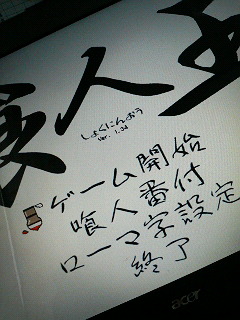 食人王
しょくにんおう
ver. 1.34
ゲーム開始
喰人番付
ローマ字設定
終了
acer